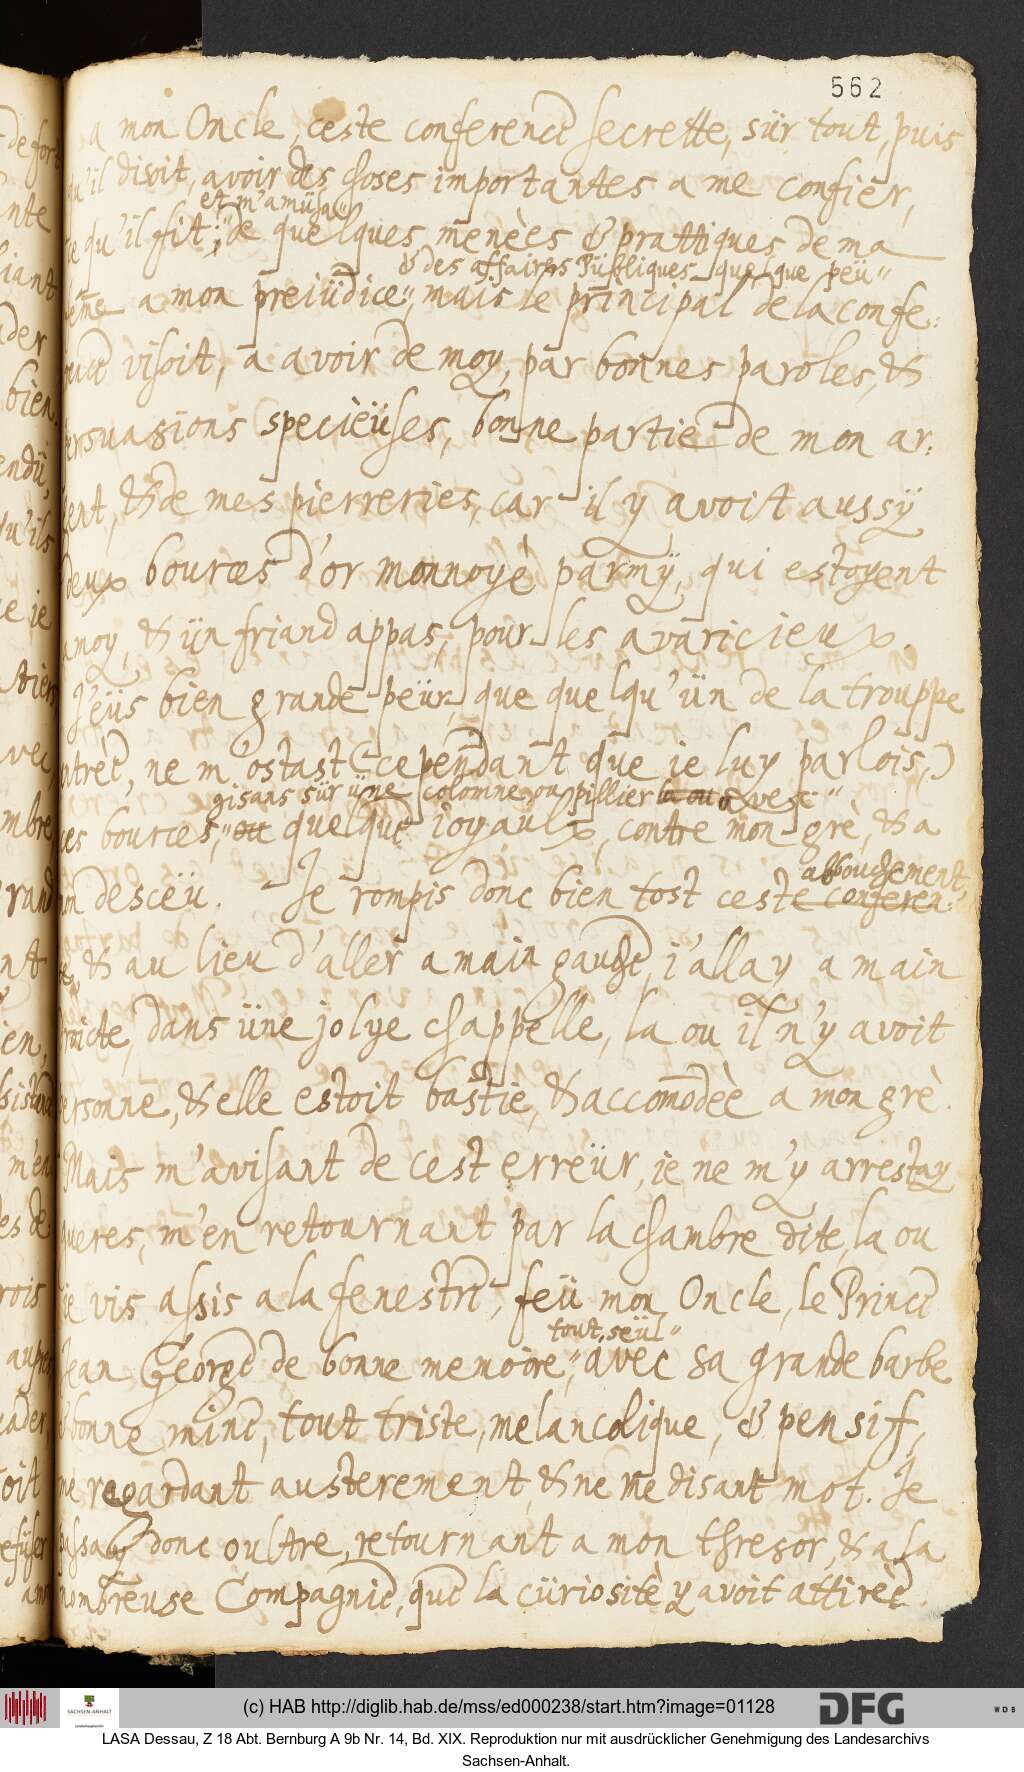 562
a mon Oncle, ceste conference secrette, sür tout, puis
qu'il disoit, avoir des choses importantes a me confier,
et m'amüsa
ce qu'il fit; de quelques menèes & prattiques de ma
& des affaires Püfliques quelque peü
feme a mon preiüdice, mais le principal de la confe:
rence visoit, a avoir de moy, par bonnes paroles, &
persuasions specieüses, bonne partie de mon ar:
gent, & de mes pierreries, car il y avoit aussÿ
deux bources d'or monnoyè parmÿ, qui estoyent
a moy, & ün friand appas, pour les avaricieux.
J'eüs bien grande peür, que quelqu'ün de la trouppe
entrèe, ne m'ostast (cependant que ie luy parlois,)
gisans sür üne colomne ou pillier la ou avec
ces bources, ou quelque ioyaulx, contre mon grè, & a
mon desceü. Je rompis donc bien tost ceste conferen:
abbouchement,
ce, & au lieu d'aller a main gauche, i'allay a main
droicte, dans üne jolye chappelle, la ou il n'y avoit
personne, & elle estoit bastie, & accomodèe a mon grè.
Mais m'avisant de cest erreür, ie ne m'y arrestay
gueres, m'en retournant par la chambre dite, la ou
ie vis assis a la fenestre, feü mon Oncle, le Prince
tout, seül
Jean George de bonne memoire, avec sa grande barbe
& bonne mine, tout triste, melancolique, & pensif,
me regardant austerement, & ne me disant mot. Je
passay donc oultre, retournant a mon thresor, & a la
nombreuse Compagnie, que la cüriositè y avoit attirèe.
(c) HAB http://diglib.hab.de/mss/ed000238/start.htm?image=01128
DFG
WDB
SACHSEN-ANHALT
LASA Dessau, Z 18 Abt. Bernburg A 9b Nr. 14, Bd. XIX. Reproduktion nur mit ausdrücklicher Genehmigung des Landesarchivs
Sachsen-Anhalt.